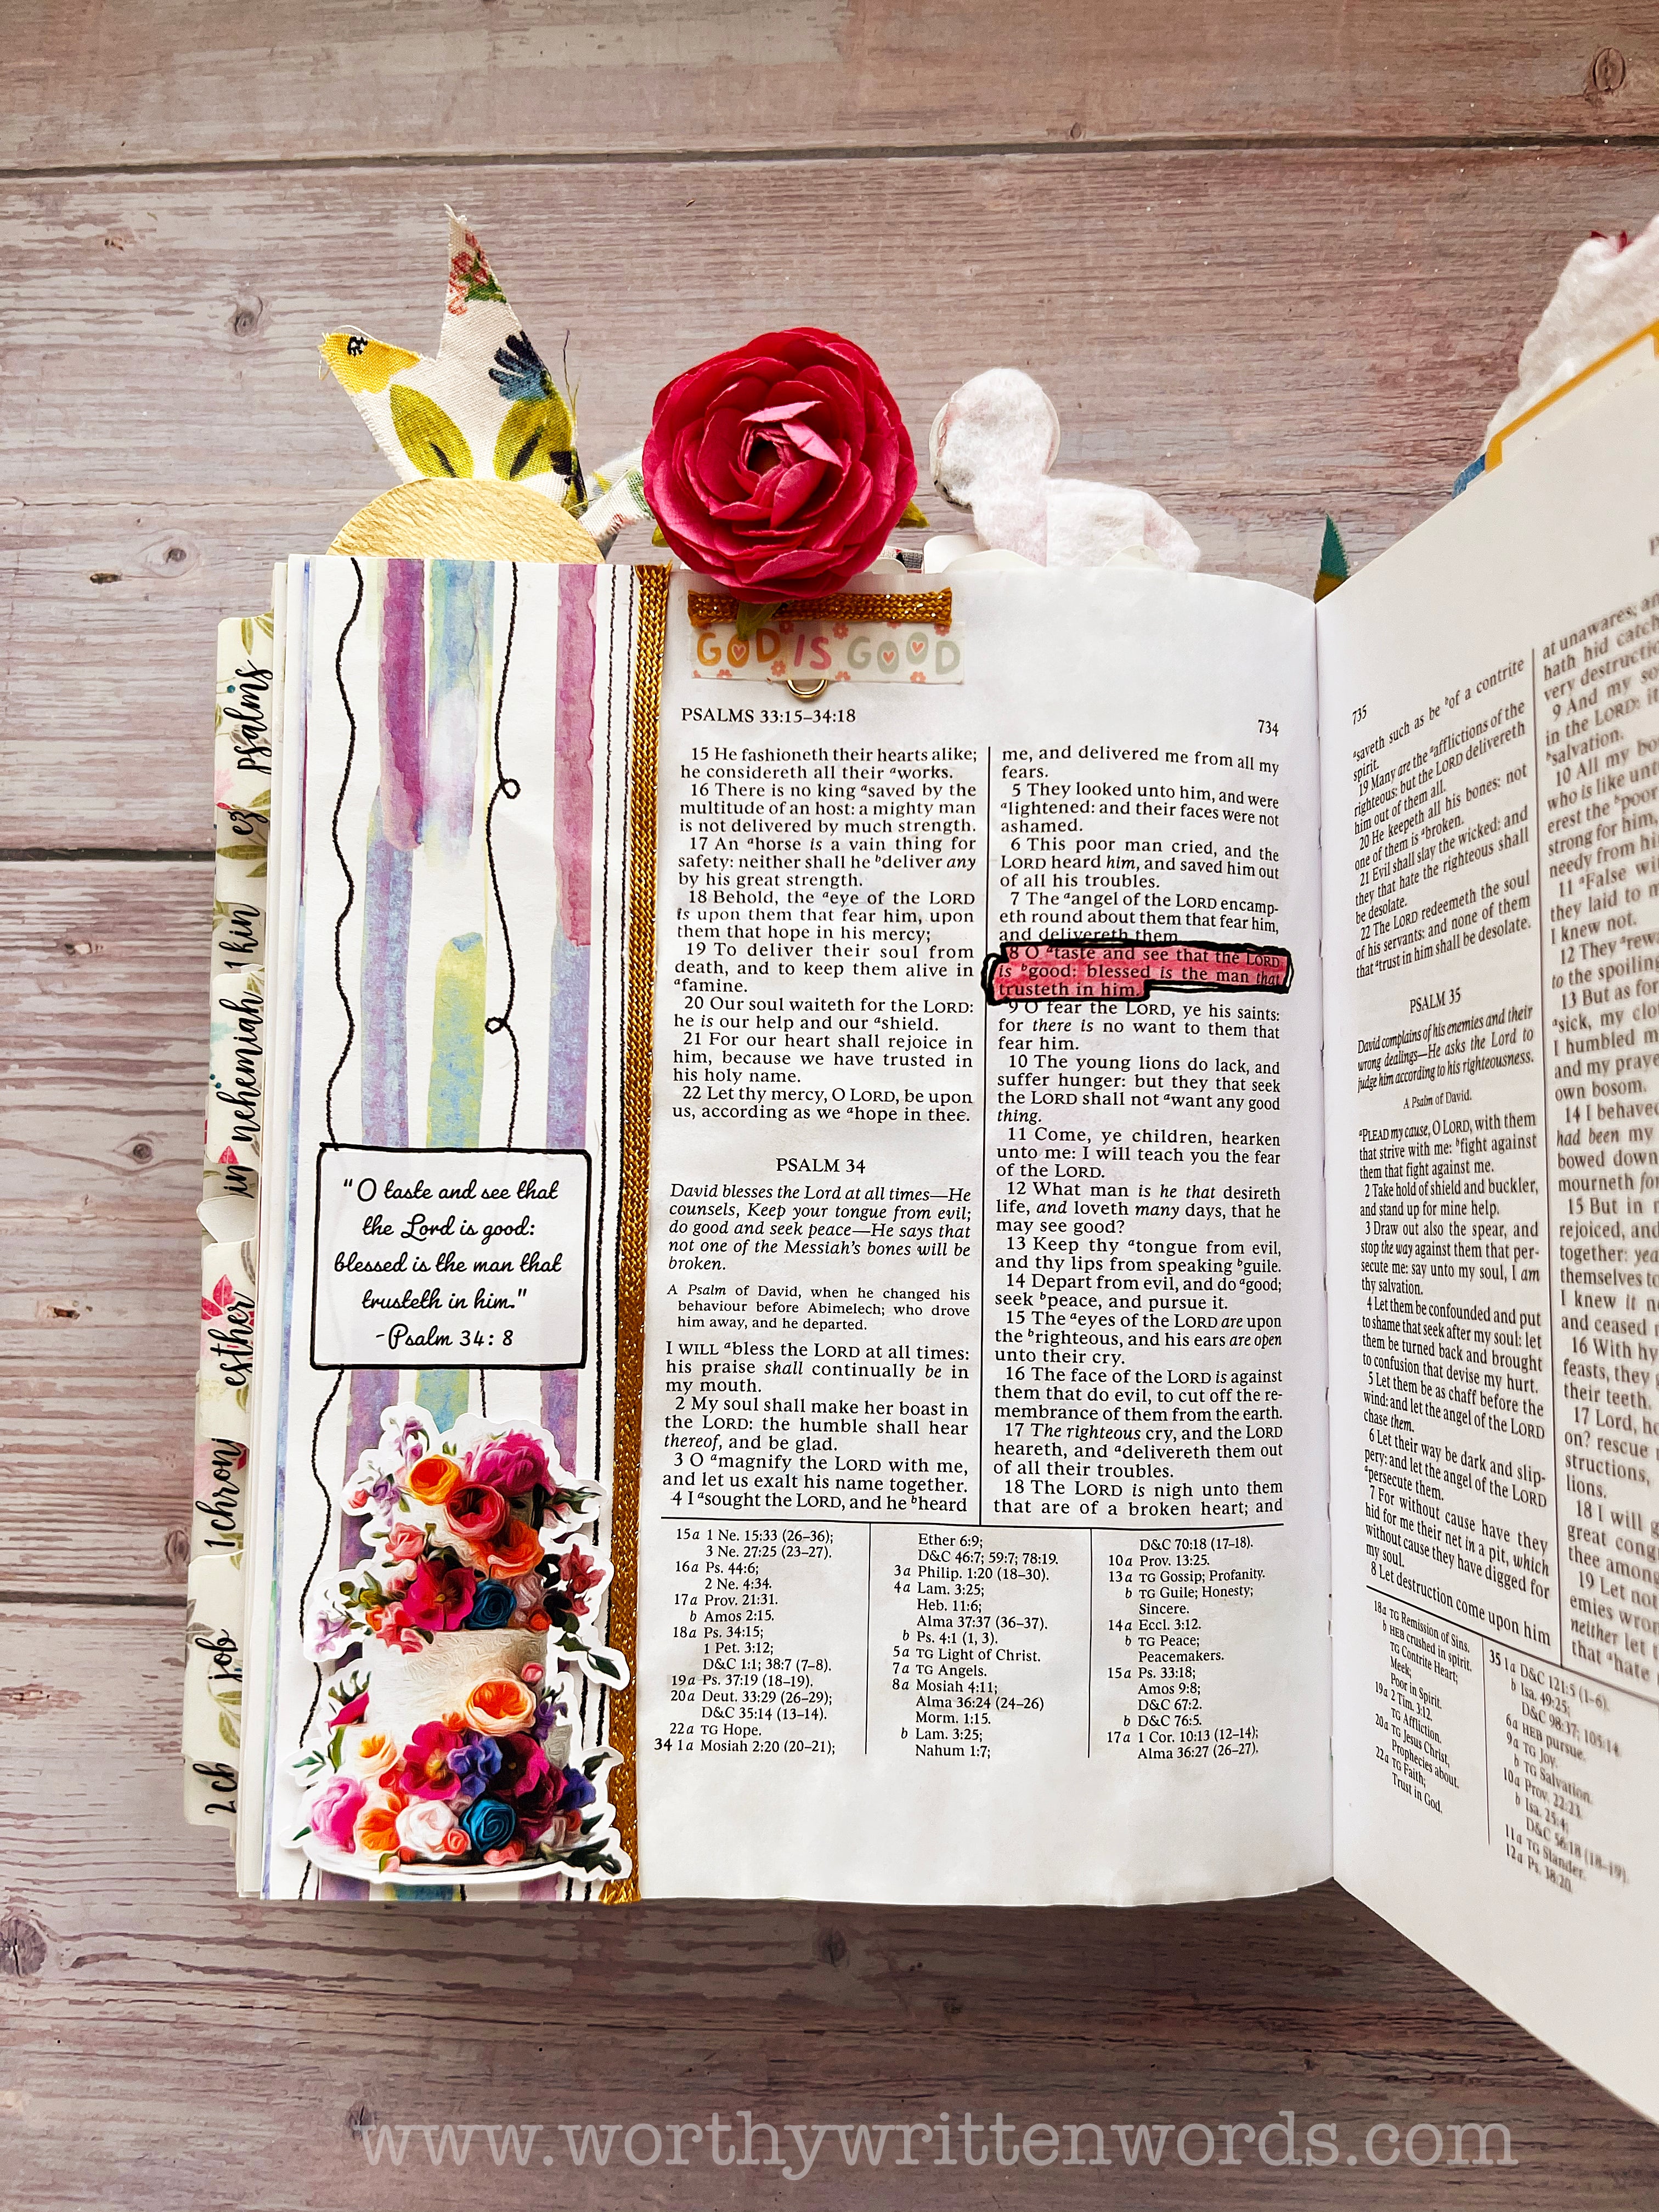 psalms
ez
1 kin
nehemiah
esther
1 chron
job
2 ch
"O taste and see that
the Lord is good:
blessed is the man that
trusteth in him."
-Psalm 34: 8
GOD IS GOOD
PSALMS 33:15–34:18
734
15 He fashioneth their hearts alike;
he considereth all their ᵃworks.
16 There is no king ᵃsaved by the
multitude of an host: a mighty man
is not delivered by much strength.
17 An ᵃhorse is a vain thing for
safety: neither shall he ᵇdeliver any
by his great strength.
18 Behold, the ᵃeye of the LORD
is upon them that fear him, upon
them that hope in his mercy;
19 To deliver their soul from
death, and to keep them alive in
ᵃfamine.
20 Our soul waiteth for the LORD:
he is our help and our ᵃshield.
21 For our heart shall rejoice in
him, because we have trusted in
his holy name.
22 Let thy mercy, O LORD, be upon
us, according as we ᵃhope in thee.
PSALM 34
David blesses the Lord at all times—He
counsels, Keep your tongue from evil;
do good and seek peace—He says that
not one of the Messiah's bones will be
broken.
A Psalm of David, when he changed his
behaviour before Abimelech; who drove
him away, and he departed.
I WILL ᵃbless the LORD at all times:
his praise shall continually be in
my mouth.
2 My soul shall make her boast in
the LORD: the humble shall hear
thereof, and be glad.
3 O ᵃmagnify the LORD with me,
and let us exalt his name together.
4 I ᵃsought the LORD, and he ᵇheard
me, and delivered me from all my
fears.
5 They looked unto him, and were
ᵃlightened: and their faces were not
ashamed.
6 This poor man cried, and the
LORD heard him, and saved him out
of all his troubles.
7 The ᵃangel of the LORD encamp-
eth round about them that fear him,
and delivereth them
8 O ᵃtaste and see that the LORD
is ᵇgood: blessed is the man that
trusteth in him.
9 O fear the LORD, ye his saints:
for there is no want to them that
fear him.
10 The young lions do lack, and
suffer hunger: but they that seek
the LORD shall not ᵃwant any good
thing.
11 Come, ye children, hearken
unto me: I will teach you the fear
of the LORD.
12 What man is he that desireth
life, and loveth many days, that he
may see good?
13 Keep thy ᵃtongue from evil,
and thy lips from speaking ᵇguile.
14 Depart from evil, and do ᵃgood;
seek ᵇpeace, and pursue it.
15 The ᵃeyes of the LORD are upon
the ᵇrighteous, and his ears are open
unto their cry.
16 The face of the LORD is against
them that do evil, to cut off the re-
membrance of them from the earth.
17 The righteous cry, and the LORD
heareth, and ᵃdelivereth them out
of all their troubles.
18 The LORD is nigh unto them
that are of a broken heart; and
15a 1 Ne. 15:33 (26–36);
3 Ne. 27:25 (23–27).
16a Ps. 44:6;
2 Ne. 4:34.
17a Prov. 21:31.
b Amos 2:15.
18a Ps. 34:15;
1 Pet. 3:12;
D&C 1:1; 38:7 (7–8).
19a Ps. 37:19 (18–19).
20a Deut. 33:29 (26–29);
D&C 35:14 (13–14).
22a TG Hope.
34 1a Mosiah 2:20 (20–21);
Ether 6:9;
D&C 46:7; 59:7; 78:19.
3a Philip. 1:20 (18–30).
4a Lam. 3:25;
Heb. 11:6;
Alma 37:37 (36–37).
b Ps. 4:1 (1, 3).
5a TG Light of Christ.
7a TG Angels.
8a Mosiah 4:11;
Alma 36:24 (24–26)
Morm. 1:15.
b Lam. 3:25;
Nahum 1:7;
D&C 70:18 (17–18).
10a Prov. 13:25.
13a TG Gossip; Profanity.
b TG Guile; Honesty;
Sincere.
14a Eccl. 3:12.
b TG Peace;
Peacemakers.
15a Ps. 33:18;
Amos 9:8;
D&C 67:2.
b D&C 76:5.
17a 1 Cor. 10:13 (12–14);
Alma 36:27 (26–27).
735
ᵃsaveth such as be ᵇof a contrite
spirit.
19 Many are the ᵃafflictions of the
righteous: but the LORD delivereth
him out of them all.
20 He keepeth all his bones: not
one of them is ᵃbroken.
21 Evil shall slay the wicked: and
they that hate the righteous shall
be desolate.
22 The LORD redeemeth the soul
of his servants: and none of them
that ᵃtrust in him shall be desolate.
PSALM 35
David complains of his enemies and their
wrong dealings—He asks the Lord to
judge him according to his righteousness.
A Psalm of David.
ᵃPLEAD my cause, O LORD, with them
that strive with me: ᵇfight against
them that fight against me.
2 Take hold of shield and buckler,
and stand up for mine help.
3 Draw out also the spear, and
stop the way against them that per-
secute me: say unto my soul, I am
thy salvation.
4 Let them be confounded and put
to shame that seek after my soul: let
them be turned back and brought
to confusion that devise my hurt.
5 Let them be as chaff before the
wind: and let the angel of the LORD
chase them.
6 Let their way be dark and slip-
pery: and let the angel of the LORD
ᵃpersecute them.
7 For without cause have they
hid for me their net in a pit, which
without cause they have digged for
my soul.
8 Let destruction come upon him
at unawares; an
hath hid catch
very destructio
9 And my so
in the LORD: it
ᵇsalvation.
10 All my bo
who is like unt
erest the ᵇpoor
strong for him,
needy from hi
11 ᵃFalse wi
they laid to m
I knew not.
12 They ᵃrew
to the spoiling
13 But as for
ᵃsick, my clo
I humbled m
and my praye
own bosom.
14 I behaved
had been my
bowed down
mourneth for
15 But in m
rejoiced, and
together: yea
themselves to
I knew it n
and ceased
16 With hy
feasts, they
their teeth.
17 Lord, ho
on? rescue
structions,
lions.
18 I will g
great cong
thee among
19 Let not
emies wron
neither let t
that ᵃhate
18a TG Remission of Sins.
b HEB crushed in spirit.
TG Contrite Heart;
Meek;
Poor in Spirit.
19a 2 Tim. 3:12.
TG Affliction.
20a TG Jesus Christ,
Prophecies about.
22a TG Faith;
Trust in God.
35 1a D&C 121:5 (1–6).
b Isa. 49:25;
D&C 98:37; 105:14.
6a HEB pursue.
9a TG Joy.
b TG Salvation.
10a Prov. 22:23.
b Isa. 25:4;
D&C 56:18 (18–19).
11a TG Slander.
12a Ps. 38:20.
www.worthywrittenwords.com